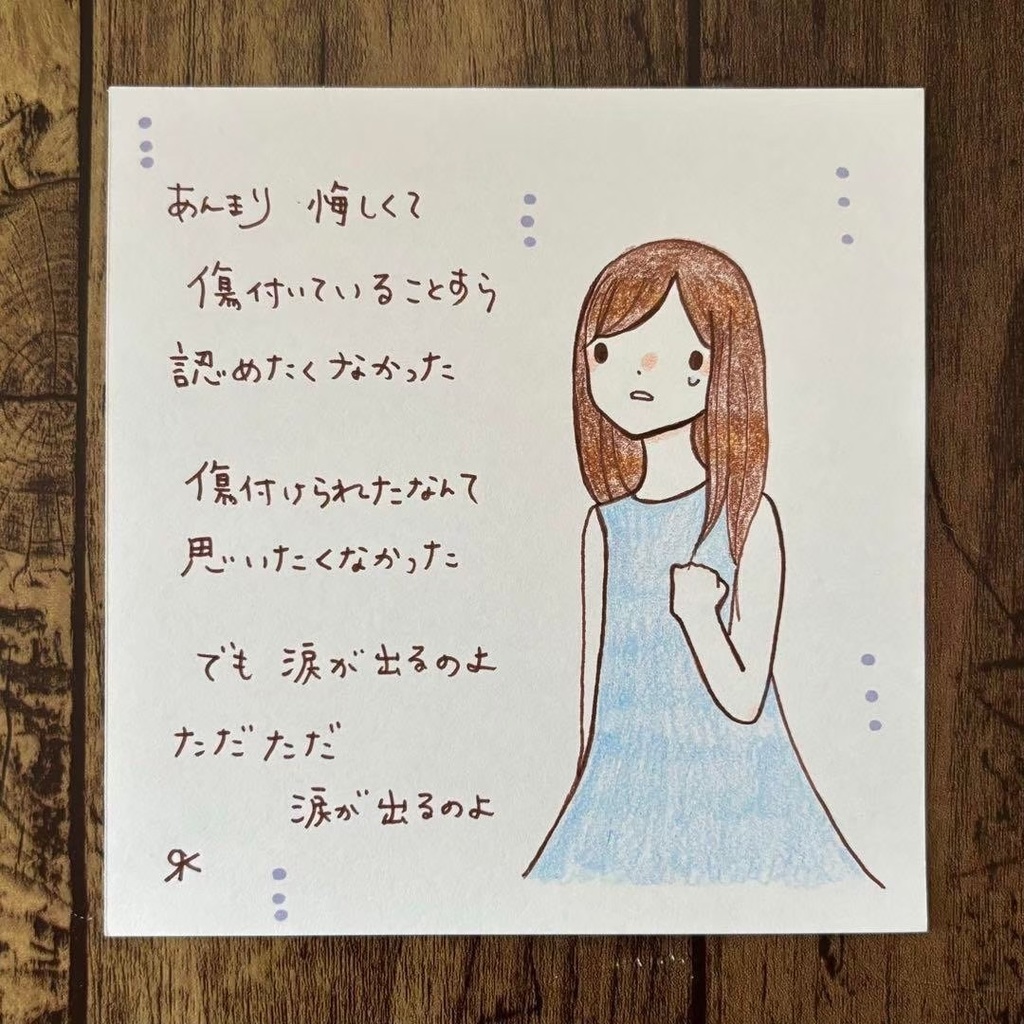 あんまり 悔しくて
傷付いていることすら
認めたくなかった
傷付けられたなんて
思いたくなかった
でも 涙が出るのよ
ただただ
涙が出るのよ